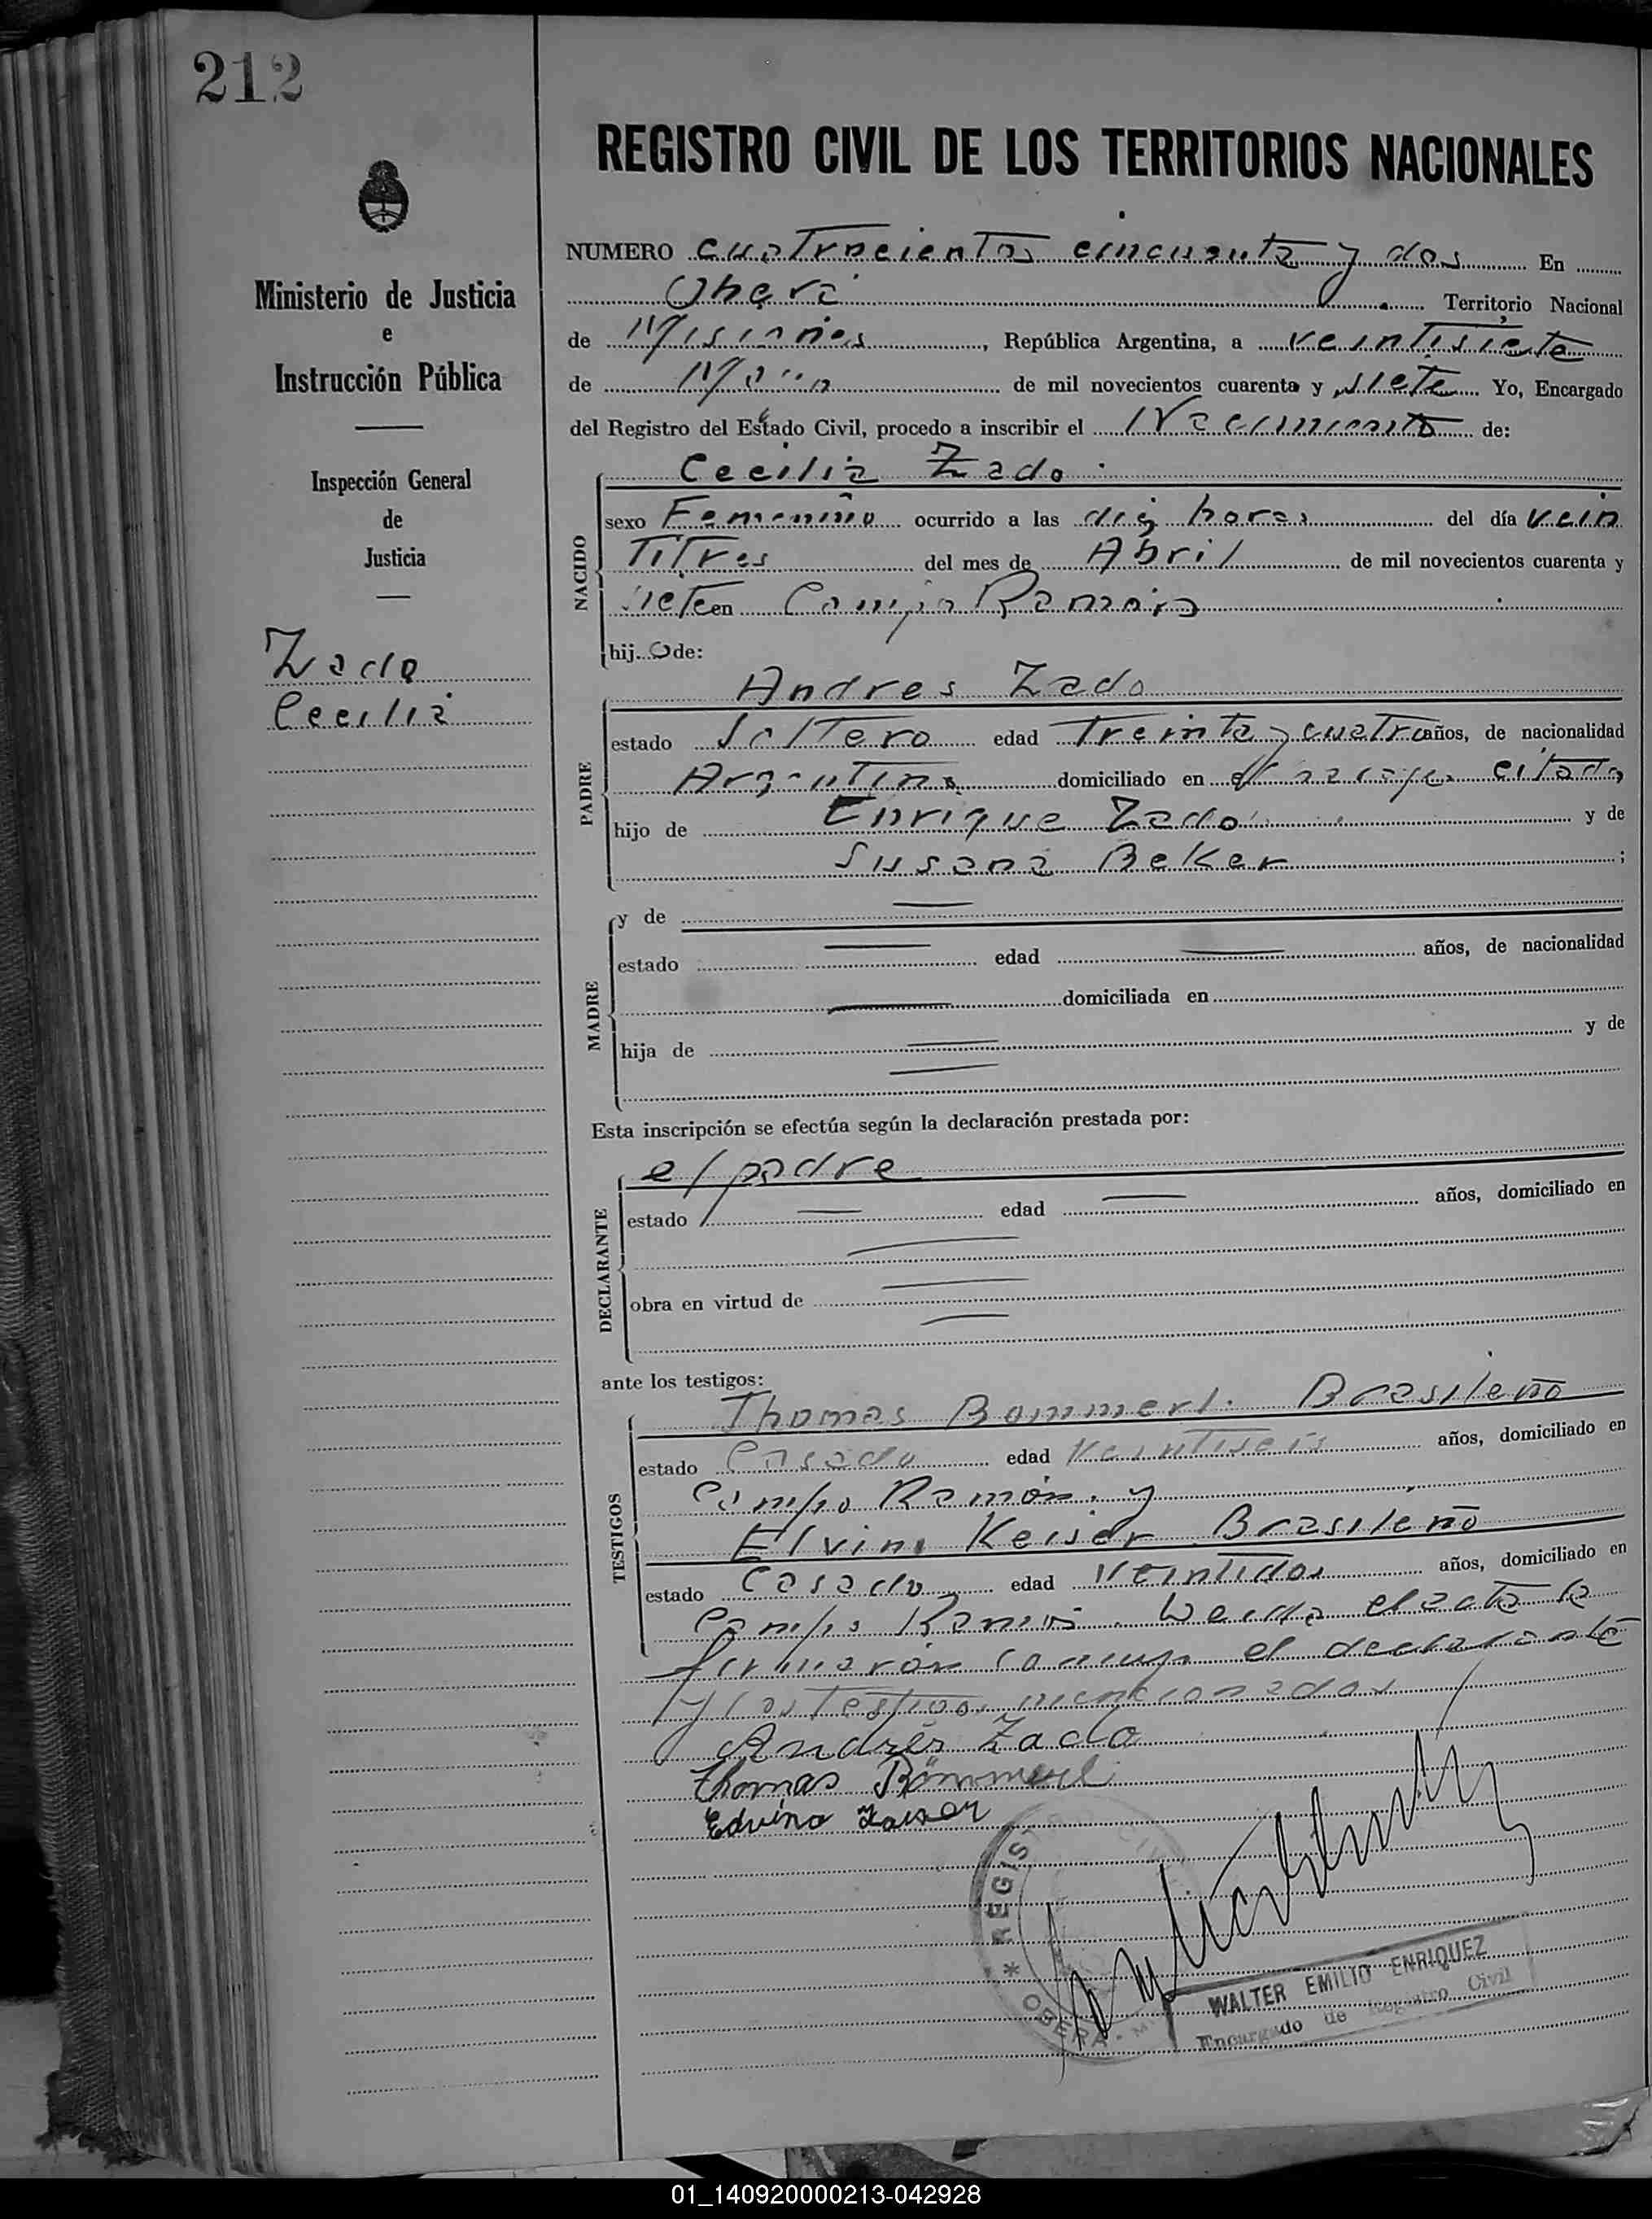 212
REGISTRO CIVIL DE LOS TERRITORIOS NACIONALES
Ministerio de Justicia
e
Instrucción Pública
Inspección General
de
Justicia
Zado
Cecilia
NUMERO cuatrocientos cincuenta y dos En
Oberá Territorio Nacional
de Misiones, República Argentina, a veintisiete
de Mayo de mil novecientos cuarenta y siete Yo, Encargado
del Registro del Estado Civil, procedo a inscribir el Nacimiento de:
Cecilia Zado
NACIDO
sexo Femenino ocurrido a las diez horas del día vein
titres del mes de Abril de mil novecientos cuarenta y
siete en Campo Ramón
hij o de:
PADRE
Andres Zado
estado Soltero edad treinta y cuatro años, de nacionalidad
Argentina domiciliado en el citado
hijo de Enrique Zado y de
Susana Beker ;
MADRE
y de
estado edad años, de nacionalidad
domiciliada en
hija de y de
Esta inscripción se efectúa según la declaración prestada por:
el padre
DECLARANTE
estado edad años, domiciliado en
obra en virtud de
ante los testigos:
TESTIGOS
Thomas Bommerl. Brasileño
estado Casado edad veintiseis años, domiciliado en
Campo Ramón. y
Elvino Keiser Brasileño
estado Casado edad veintidos años, domiciliado en
Campo Ramón. el acta la
firmaron conmigo el declarante
y los testigos mencionados
Andrés Zado
Thomas Bömmerl
Edvino
REGIS CIVIL
* OBERA - M
WALTER EMILIO ENRIQUEZ
Encargado de Registro Civil
01_140920000213-042928